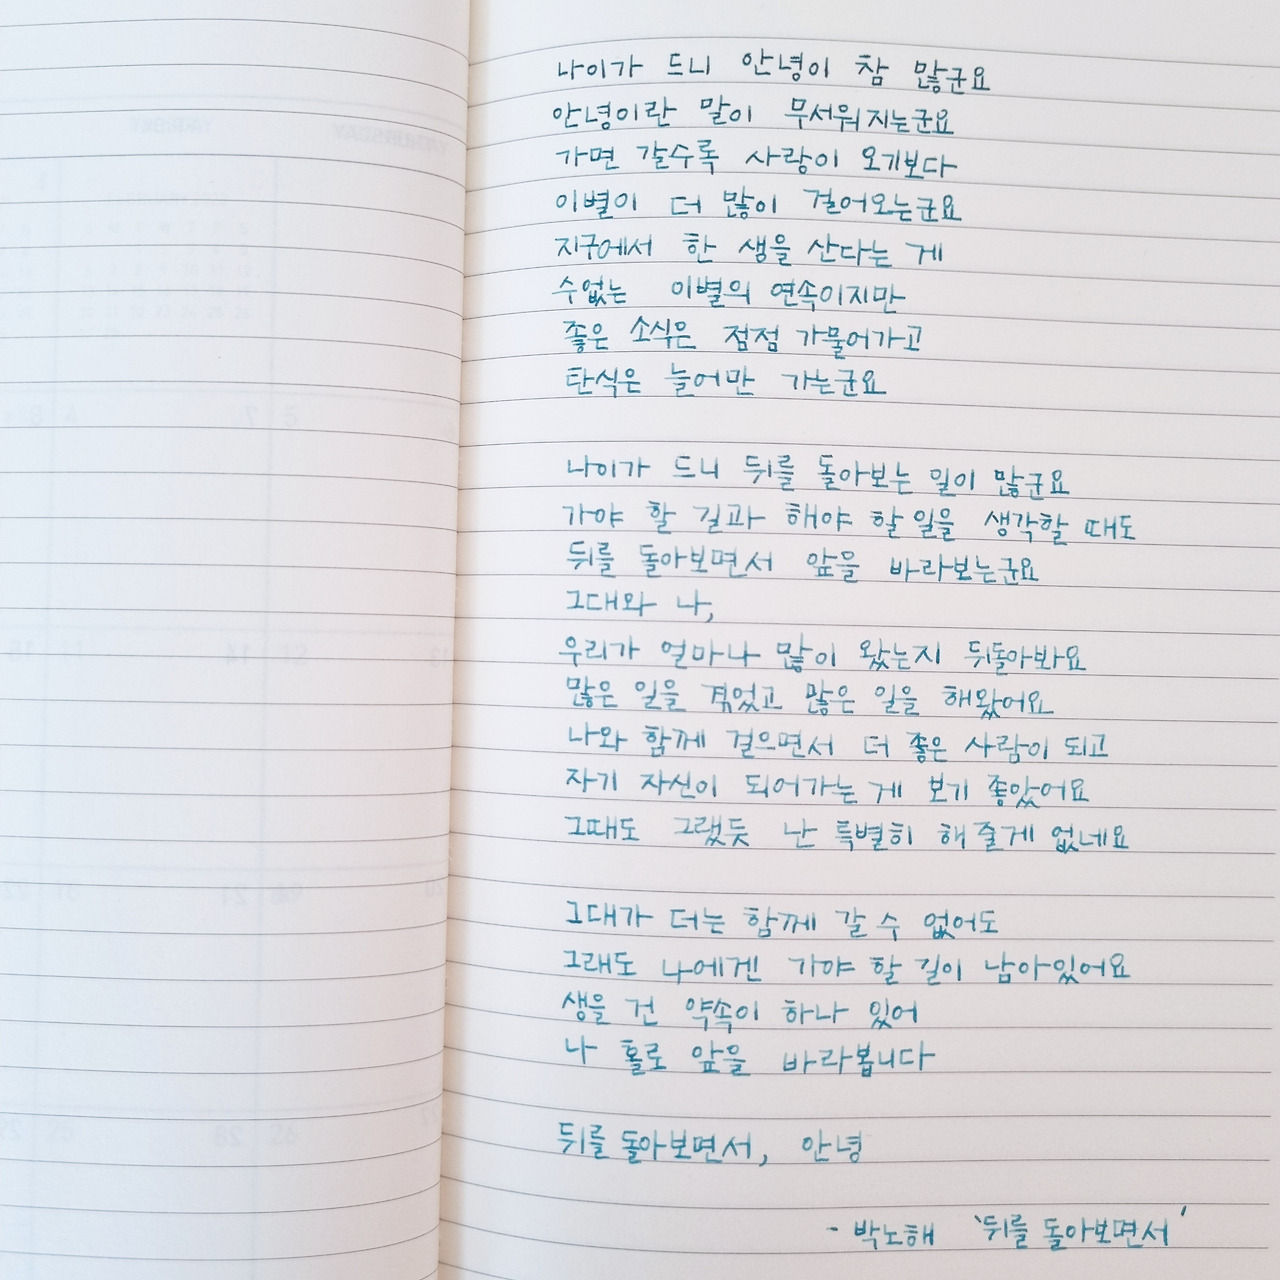 나이가 드니 안녕이 참 많군요
안녕이란 말이 무서워지는군요
가면 갈수록 사랑이 오기보다
이별이 더 많이 걸어오는군요
지구에서 한 생을 산다는 게
수없는 이별의 연속이지만
좋은 소식은 점점 가물어가고
탄식은 늘어만 가는군요
나이가 드니 뒤를 돌아보는 일이 많군요
가야 할 길과 해야 할 일을 생각할 때도
뒤를 돌아보면서 앞을 바라보는군요
그대와 나,
우리가 얼마나 많이 왔는지 뒤돌아봐요
많은 일을 겪었고 많은 일을 해왔어요
나와 함께 걸으면서 더 좋은 사람이 되고
자기 자신이 되어가는 게 보기 좋았어요
그때도 그랬듯 난 특별히 해줄게 없네요
그대가 더는 함께 갈 수 없어도
그래도 나에겐 가야 할 길이 남아있어요
생을 건 약속이 하나 있어
나 홀로 앞을 바라봅니다
뒤를 돌아보면서, 안녕
- 박노해 '뒤를 돌아보면서'